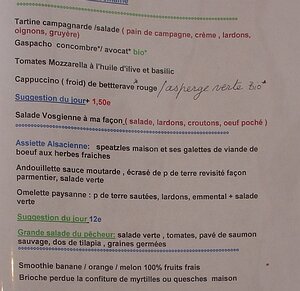 Tartine campagnarde /salade ( pain de campagne, crème , lardons,
oignons, gruyère)
Gaspacho concombre*/ avocat* bio*
Tomates Mozzarella à l'huile d'ilive et basilic
Cappuccino ( froid) de bettterave rouge / asperge verte bio*
Suggestion du jour+ 1,50e
Salade Vosgienne à ma façon( salade, lardons, croutons, oeuf poché )
Assiette Alsacienne: speatzles maison et ses galettes de viande de
boeuf aux herbes fraiches
Andouillette sauce moutarde , écrasé de p de terre revisité façon
parmentier, salade verte
Omelette paysanne : p de terre sautées, lardons, emmental + salade
verte
Suggestion du jour 12e
Grande salade du pêcheur: salade verte , tomates, pavé de saumon
sauvage, dos de tilapia , graines germées
Smoothie banane / orange / melon 100% fruits frais
Brioche perdue la confiture de myrtilles ou quesches maison